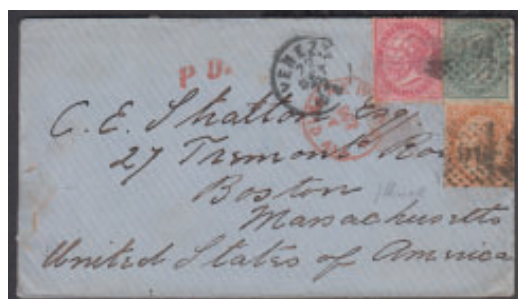 P D.
VENEZ
C. E. Stratton Esq.
27 Tremont Ro
Boston
Massachusetts
United States of America